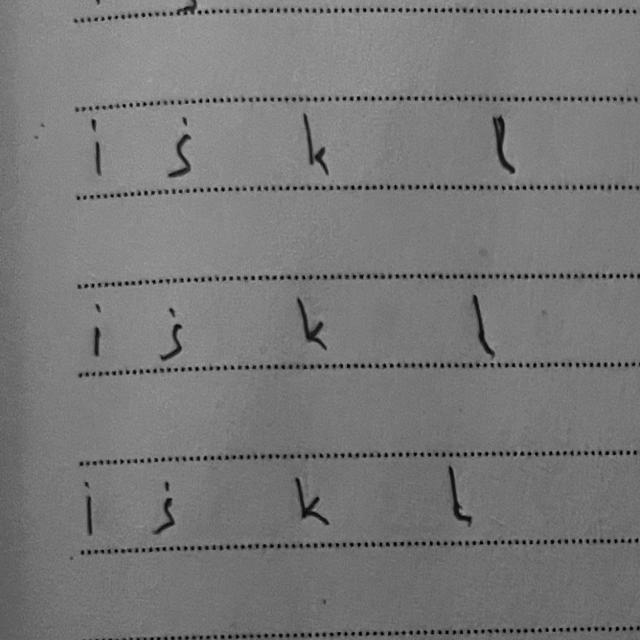 i j k l
i j k l
i j k l